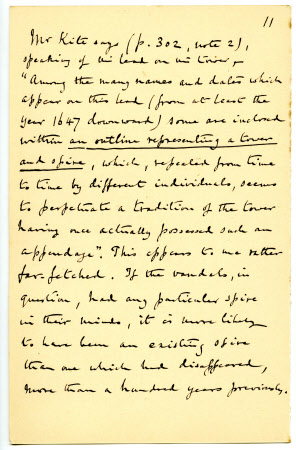 11
Mr Kite says (p. 302, note 2),
speaking of the lead on the tower, -
"Among the many names and dates which
appear on this lead (from at least the
year 1647 downward) some are inclosed
within an outline representing a tower
and spire, which, repeated from time
to time by different individuals, seems
to perpetuate a tradition of the tower
having once actually possessed such an
appendage". This appears to me rather
far-fetched. If the vandals, in
question, had any particular spire
in their minds, it is more likely
to have been an existing spire
than one which had disappeared,
more than a hundred years previously.